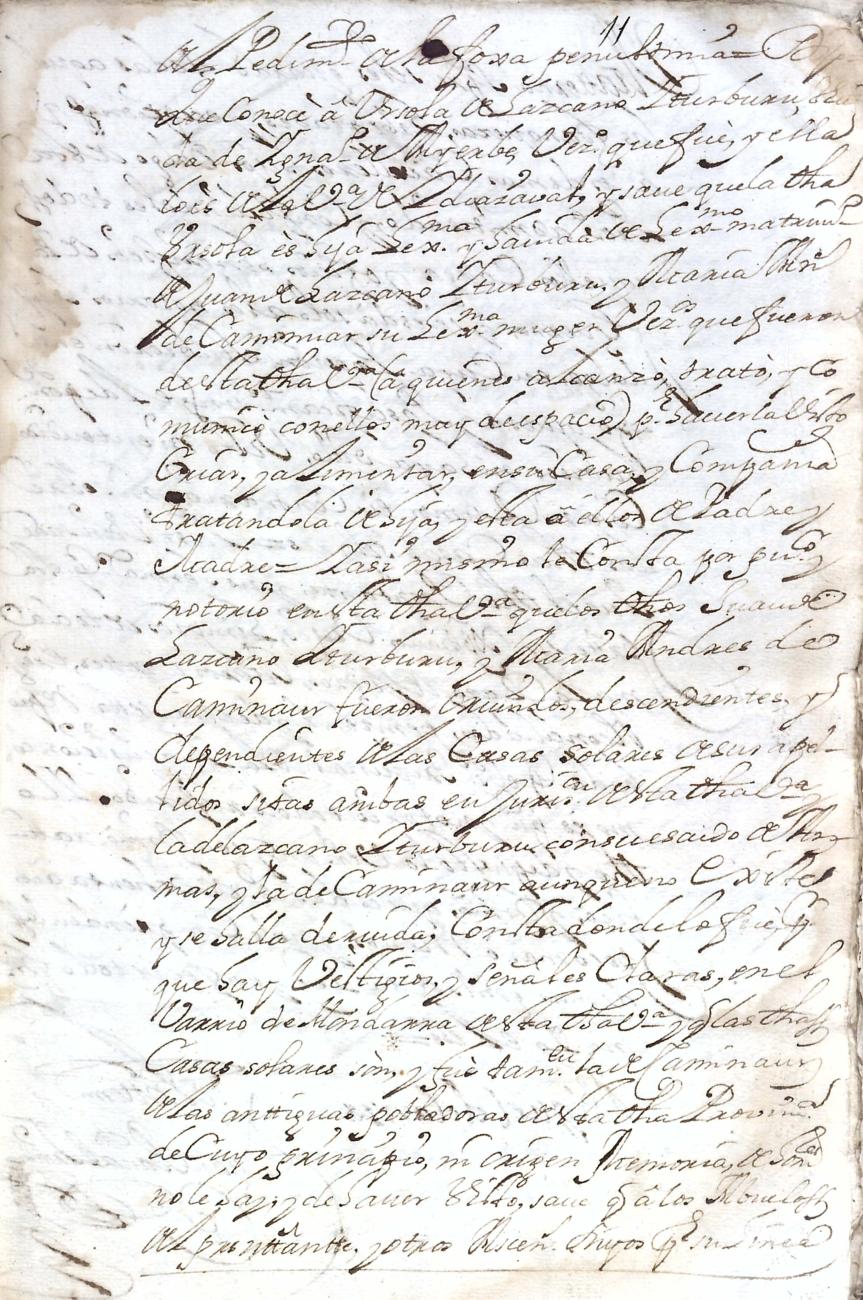 11
al Pedimto de la foxa penultima =
que Conoce â Ursola de Lazcano Yturburu
da de de Ayerbe, Vezo que fue, y ella
lo es de la Va de y save que la dha
Ursola ès hija Lexma y havida de Lexmo matrimo
de Juan de Lazcano Yturburu, y Maria
de Caminaur su Lexma muger Vezos que fueron
de esta dha Va (a quienes alcanzò, tratò, y co
municò con ellos muy de espacio) pr haverla visto
Criar, y alimentar, en su Casa, y Compania
tratandola de hija, y ella â ellos de Padre y
Madre = Y asi mismo le Consta por puco y
notorio en esta dha Va que los dhos Juan de
Lazcano Yturburu, y Maria Andres de
Caminaur fueron Oriundos, descendientes, y
dependientes de las Casas solares de sus ape-
lidos sitas ambas en Jurison de esta dha Va y
la de Lazcano Yturburu con su escudo de Ar
mas, y la de Caminaur aunque no Existe
y se halla deruida, Consta donde lo fue, pr
que hay Vestigios, y señales Claras, en el
Varrio de Mondarra de esta dha Va y q las dhas
Casas solares son, y fue tamvien la de Caminaur
de las antiguas pobladoras de esta dha Provinca
de Cuyo principio, ni origen Memoria, de
no le hay, y de haver visto, save q â los Abuelos
del presentante, y otros Ascen suyos pr su Linea